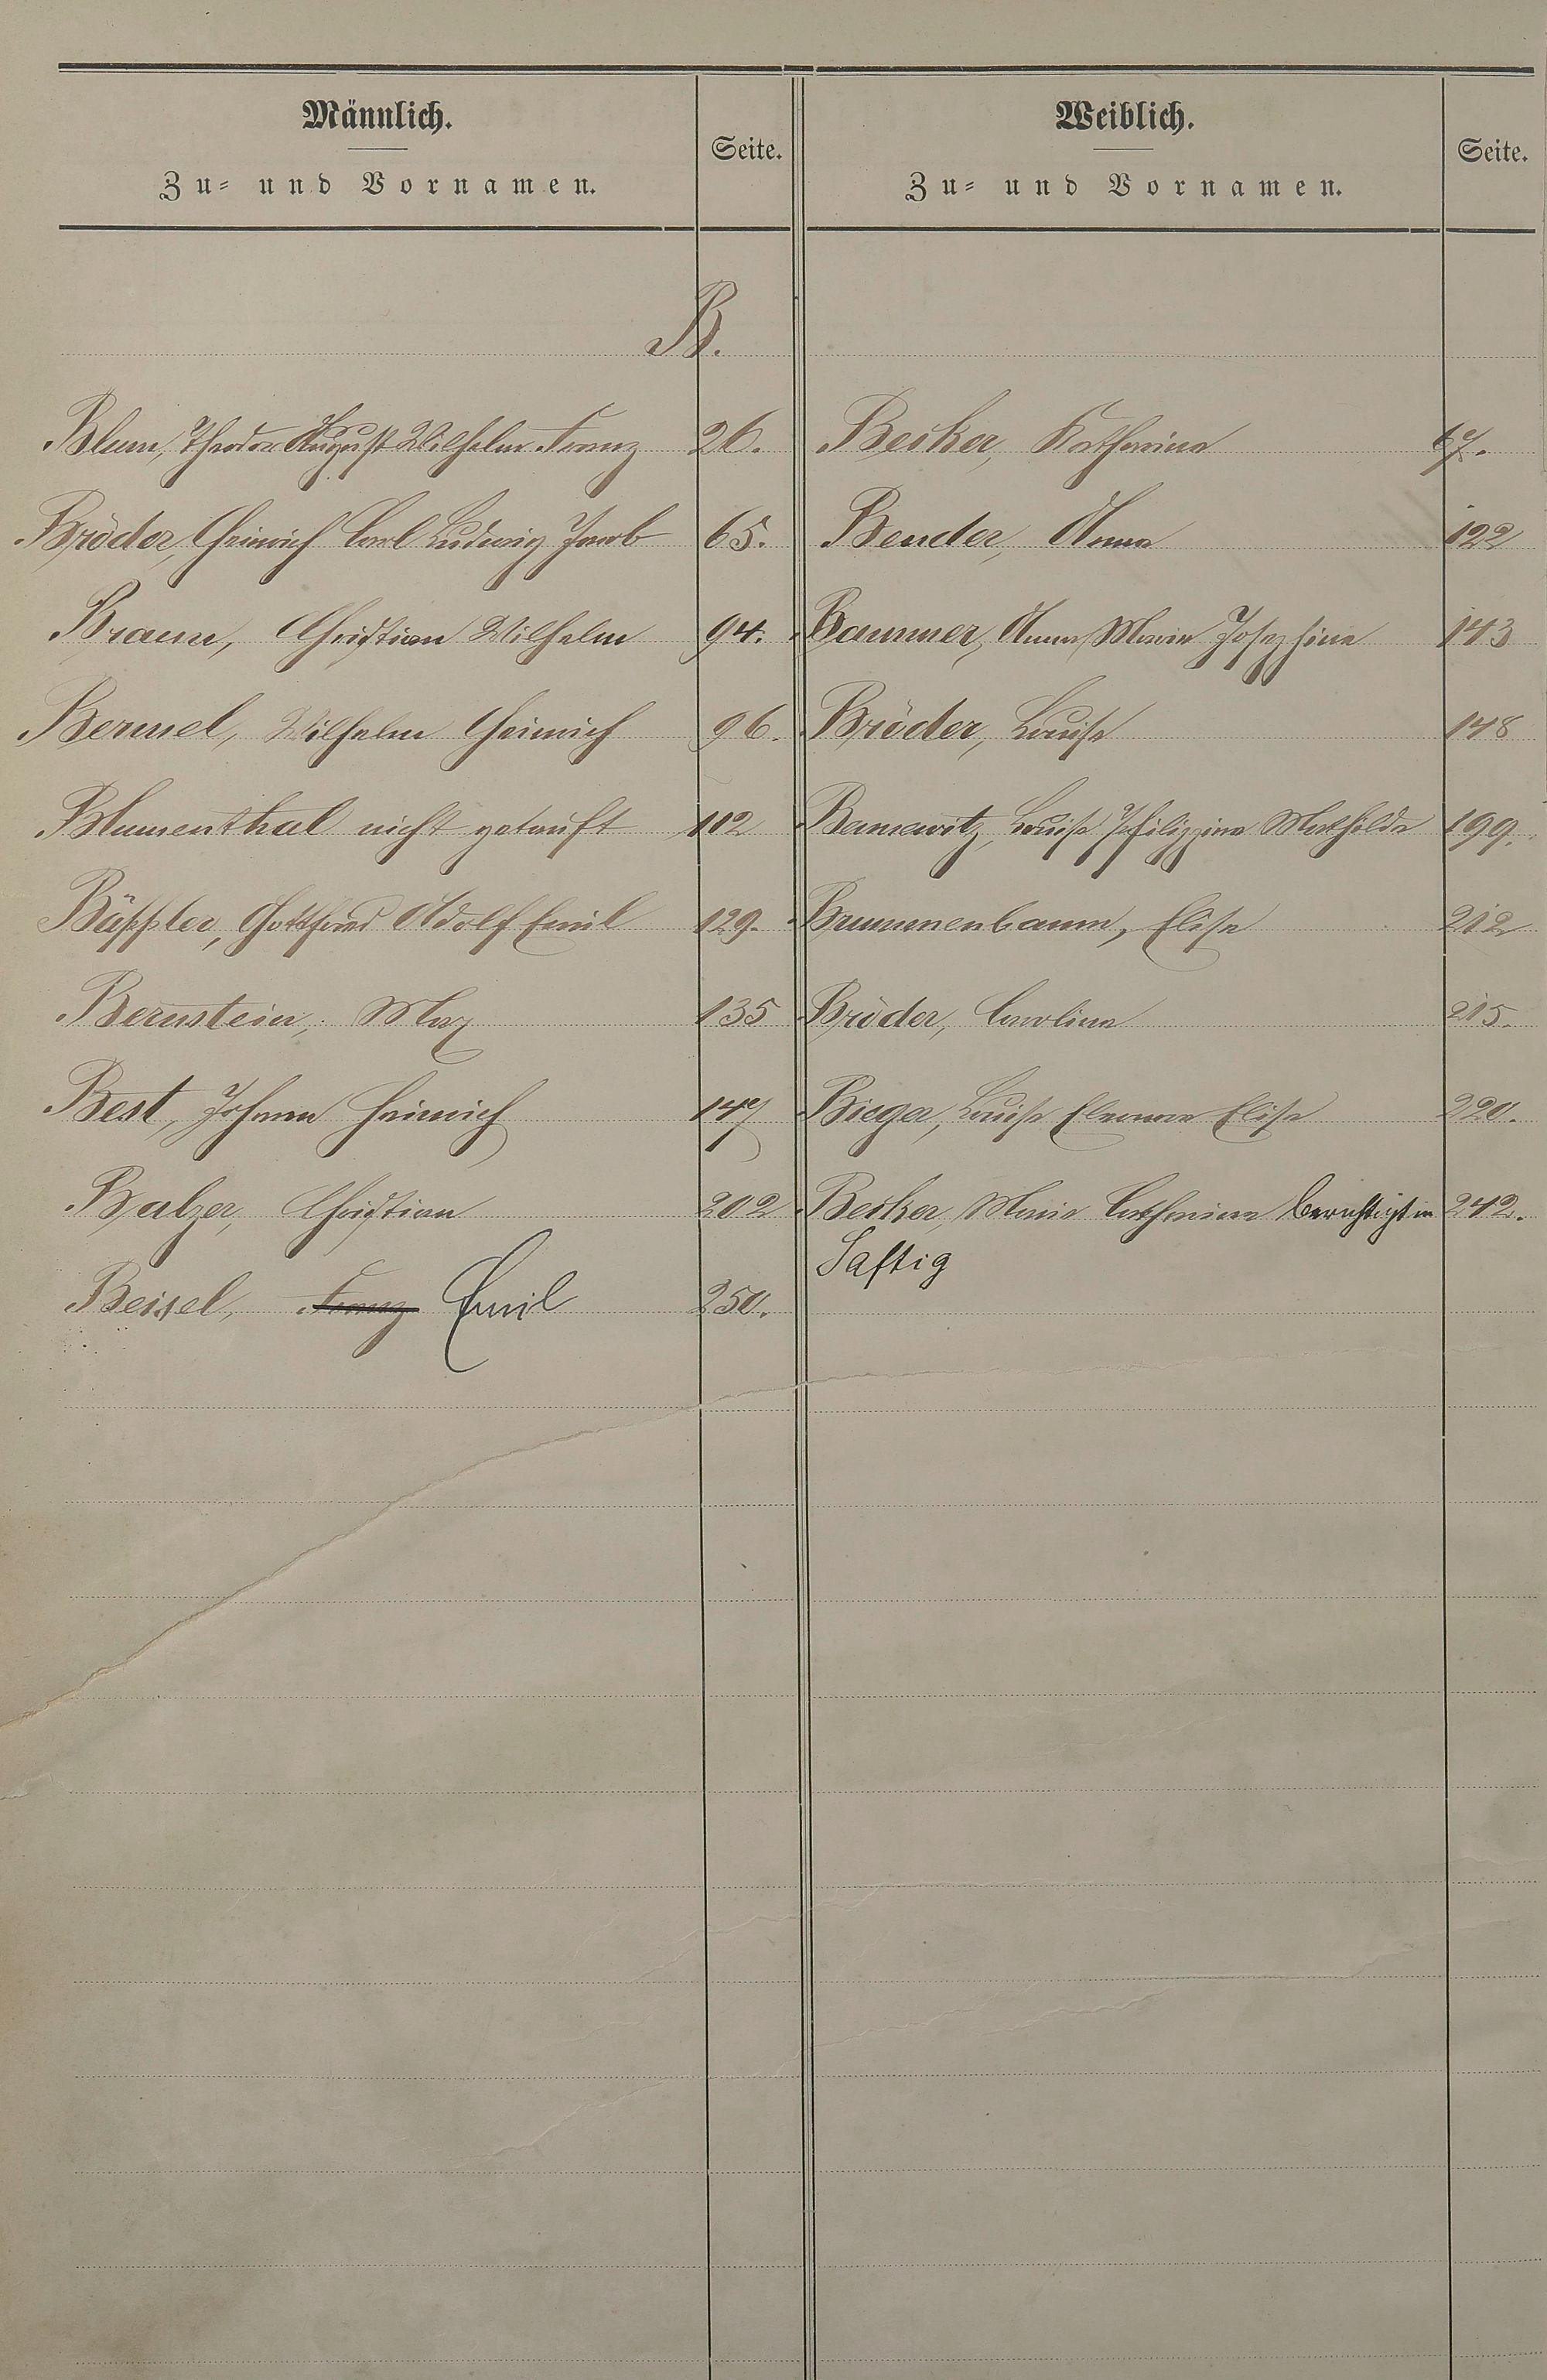 Männlich.
Zu= und Vornamen.
Seite.
Weiblich.
Zu= und Vornamen.
Seite.
B.
Blum, Theodor August Wilhelm Franz 26.
Becker, Katharina 67.
Bröder, Heinrich Carl Ludwig Jacob 65.
Bender, Anna 122
Braun, Christian Wilhelm 94.
Baummer, Anna Maria Josephine 143
Bermel, Wilhelm Heinrich 96.
Bröder, Louise 148
Blumenthal nicht getauft 112
Louise Philippine Mathilde 199.
Bäppler, Gottfried Adolf Emil 129.
Brummenbaum, Elise 212
Bernstein, Max 135
Bröder, Carolina 215.
Best, Johann Heinrich 147
Bieger, Louise Eleonore Elise 220.
Balzer, Christian 202
Becker, Maria Catharina berichtigt in 242.
Saftig
Beisel, Franz Emil 250.